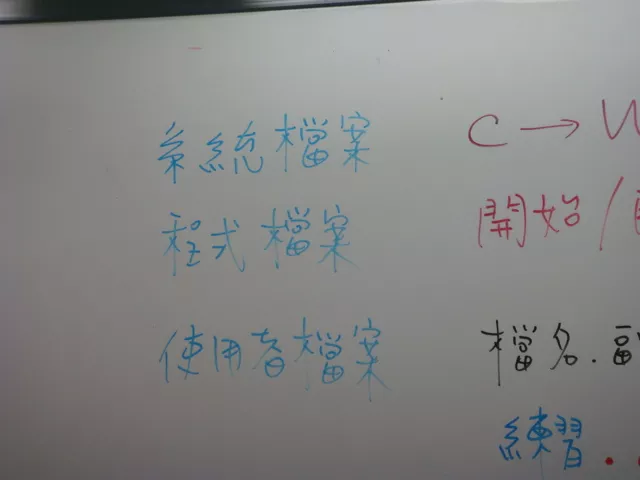 系統檔案
程式檔案
使用者檔案
C →
開始/
檔名.副
練習.